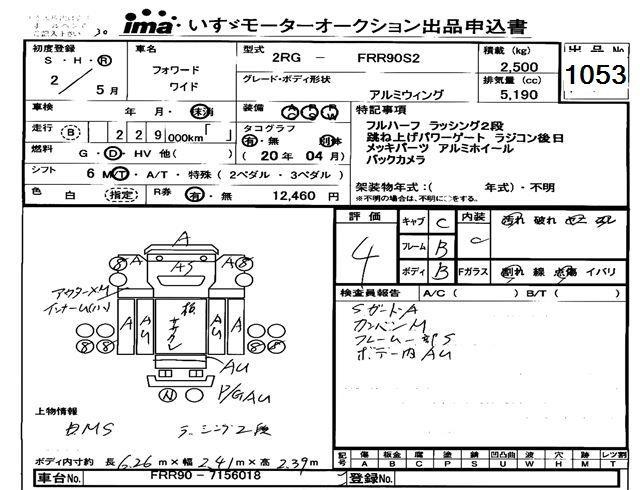 30
ima いすゞモーターオークション出品申込書
初度登録 S・H・R 2 / 5月
車名 フォワード ワイド
型式 2RG - FRR90S2
積載(kg) 2,500
出品No. 1053
グレード・ボディ形状 アルミウィング
排気量(cc) 5,190
車検 年 月・抹消
装備 A/C P/S P/W
特記事項
フルハーフ ラッシング2段
跳ね上げパワーゲート ラジコン後日
メッキパーツ アルミホイール
バックカメラ
走行(B) 2 2 9 000km「 」
タコグラフ 有・無 別体
(20年 04月)
燃料 G・D・HV 他( )
シフト 6 M/T・A/T・特殊(2ペダル・3ペダル)
色 白 (指定) R券 有・無 12,460 円
架装物年式:( 年式)・不明
※不明の場合は、不明に○をする。
評価 4
キャブ C
フレーム B
ボディ B
内装 C
汚れ 破れ
Fガラス 割れ 線 点傷 イバリ
検査員報告 A/C( ) B/T( )
Sガードト A
カンバン M
フレーム一部 S
ボデー内 AU
A
8 A AS A 8
アウターXM
インナーM(ハ)
A AU 板 A AU
8 8 8 8
AU
N P/G AU
上物情報
日MS ラッシング2段
ボディ内寸約 長 6.26 m×幅 2.41 m×高 2.39 m
記号 傷 A 板金 B 腐 C 塗 P 錆 S 凹凸曲 U 波 W 穴 H 跡 M レツ割 T
車台No. FRR90 - 7156018
登録No.